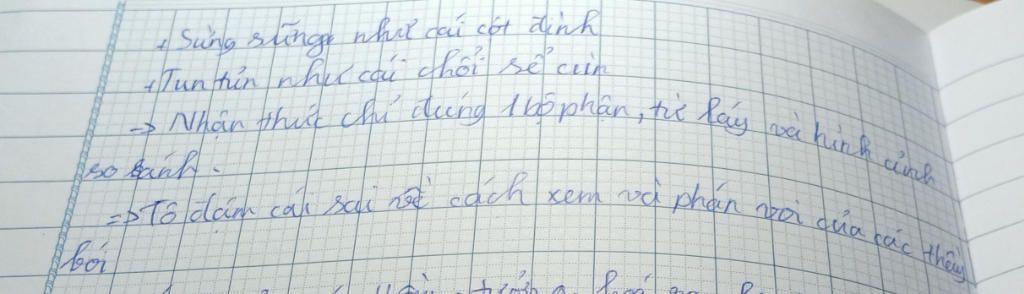 + Sừng sững như cái cột đình
+ Tun tủn như cái chổi sể cùn
-> Nhận thức chỉ đúng 1 bộ phận, từ láy và hình ảnh
so sánh.
=> Tô đậm cái sai về cách xem và phán voi của các thầy
bói